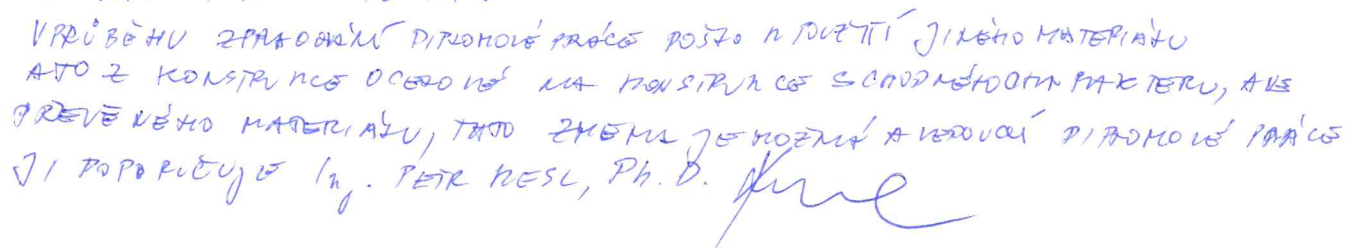 V PRŮBĚHU ZPRACOVÁNÍ DIPLOMOVÉ PRÁCE DOŠLO K POUŽITÍ JINÉHO MATERIÁLU
A TO Z KONSTRUKCE OCELOVÉ NA KONSTRUKCE SCHODNÉHO CHARAKTERU, ALE
DŘEVĚNÉHO MATERIÁLU, TATO ZMĚNA JE MOŽNÁ A VEDOUCÍ DIPLOMOVÉ PRÁCE
JI DOPORUČUJE Ing. PETR KESL, Ph.D.